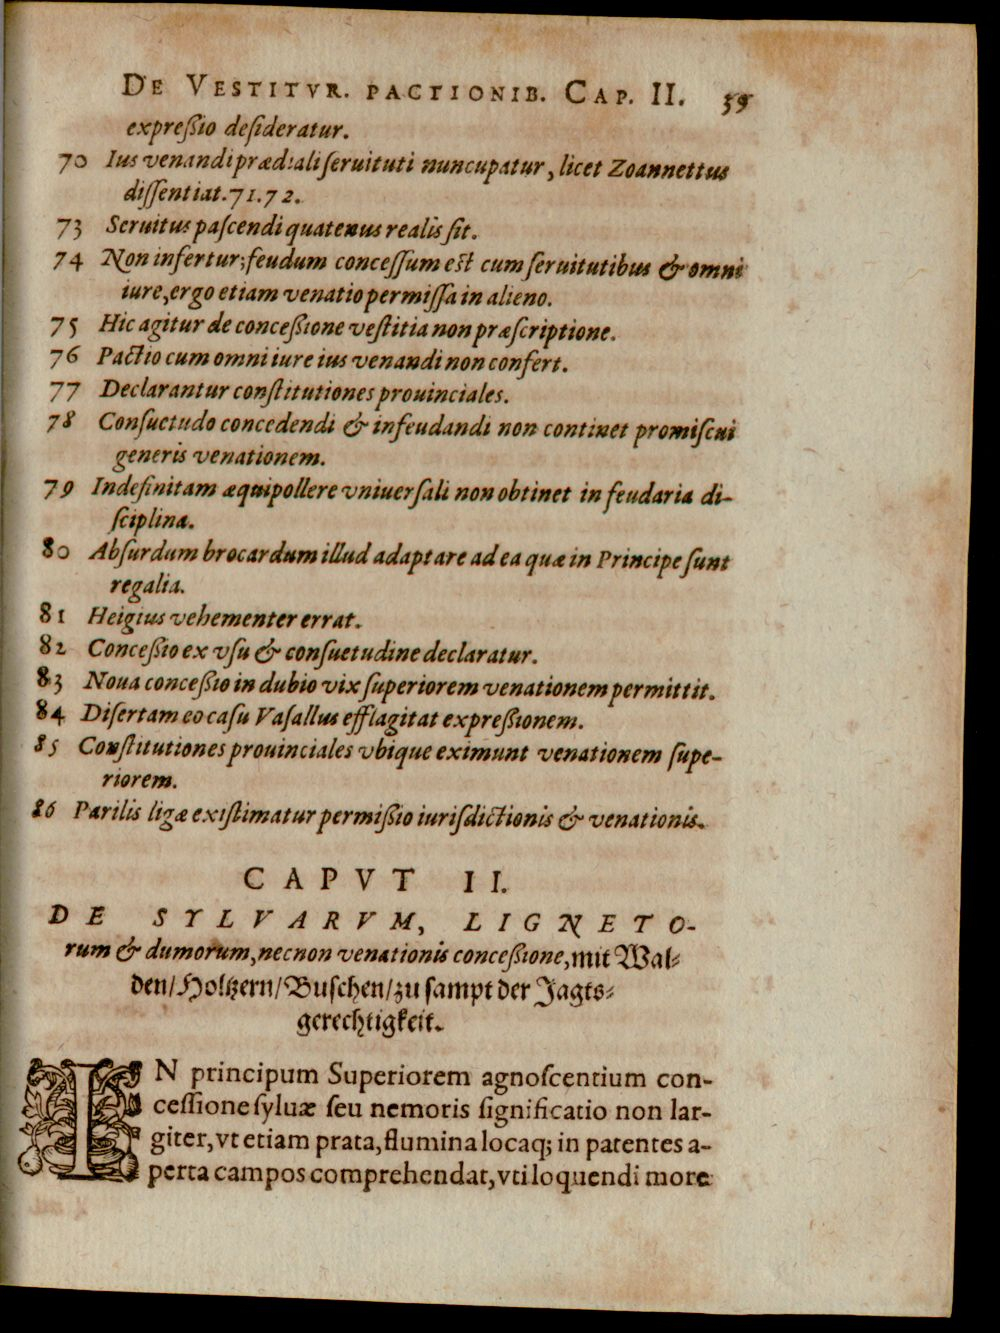 DE VESTITVR. PACTIONIB. CAP. II. 39
expreßio deſideratur.
70 Ius venandi prædiali ſeruituti nuncupatur, licet Zoannettus
diſſentiat. 71. 72.
73 Seruitus paſcendi quatenus realis ſit.
74 Non infertur; feudum conceſſum est cum ſeruitutibus & omni
iure, ergo etiam venatio permiſſa in alieno.
75 Hic agitur de conceßione veſtitia non præſcriptione.
76 Pactio cum omni iure ius venandi non confert.
77 Declarantur conſtitutiones prouinciales.
78 Conſuetudo concedendi & infeudandi non continet promiſcui
generis venationem.
79 Indefinitam æquipollere vniuerſali non obtinet in feudaria di-
ſciplina.
80 Abſurdum brocardum illud adaptare ad ea quæ in Principe ſunt
regalia.
81 Heigius vehementer errat.
82 Conceßio ex vſu & conſuetudine declaratur.
83 Noua conceßio in dubio vix ſuperiorem venationem permittit.
84 Diſertam eo caſu Vaſallus efflagitat expreßionem.
85 Conſtitutiones prouinciales vbique eximunt venationem ſupe-
riorem.
86 Parilis ligæ exiſtimatur permißio iuriſdictionis & venationis.
CAPVT II.
DE SYLVARVM, LIGNETO-
rum & dumorum, necnon venationis conceßione, mit Wal-
den/Holtzern/Buschen/zu sampt der Jagts-
gerechtigkeit.
IN principum Superiorem agnoſcentium con-
ceſſione ſyluæ ſeu nemoris ſignificatio non lar-
giter, vt etiam prata, flumina locaq; in patentes a-
perta campos comprehendat, vti loquendi more